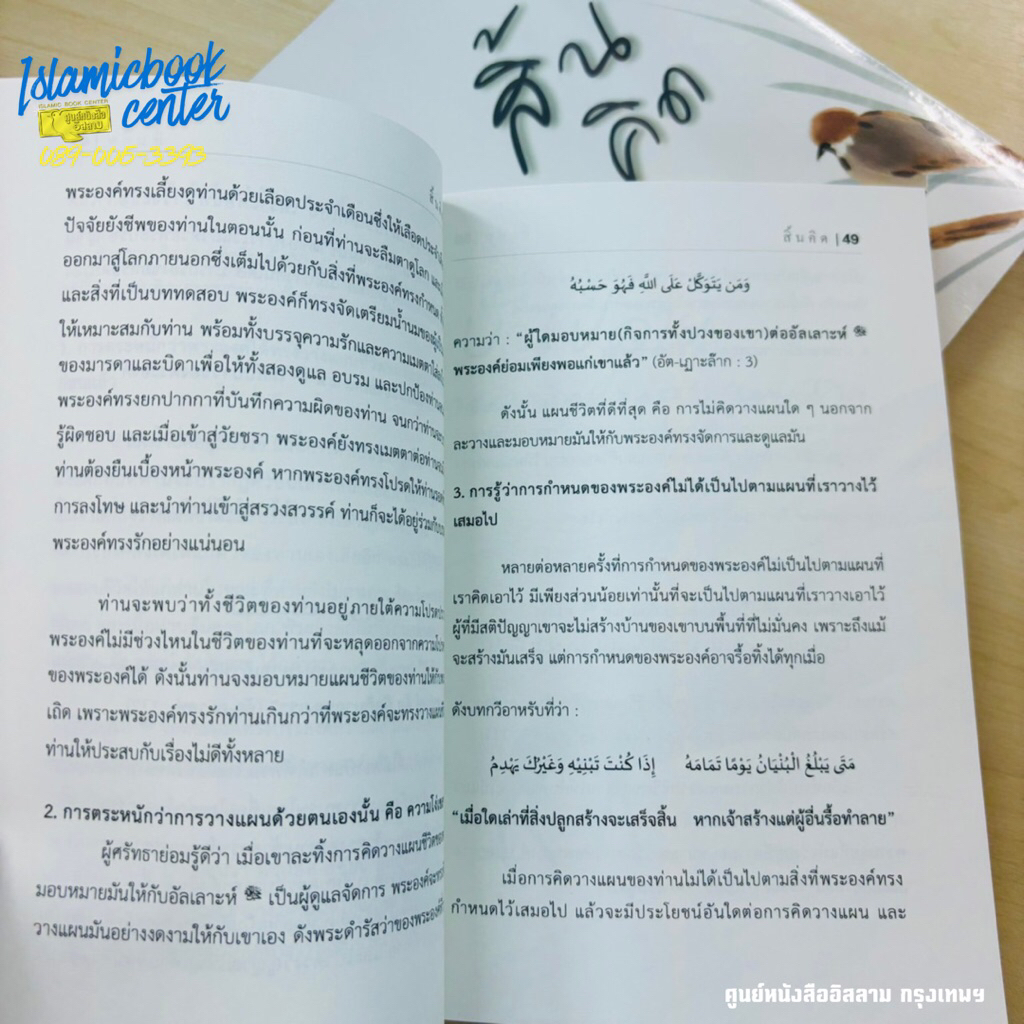 Islamicbook
center
ISLAMIC BOOK CENTER
ศูนย์หนังสือ
อิสลาม
089-005-3393
สิ้น
คิด
พระองค์ทรงเลี้ยงดูท่านด้วยเลือดประจำเดือนซึ่งให้เลือด
ปัจจัยยังชีพของท่านในตอนนั้น ก่อนที่ท่านจะลืมตาดูโลก
ออกมาสู่โลกภายนอกซึ่งเต็มไปด้วยกับสิ่งที่พระองค์ทรงกำหนด
และสิ่งที่เป็นบททดสอบ พระองค์ก็ทรงจัดเตรียมน้ำนมของ
ให้เหมาะสมกับท่าน พร้อมทั้งบรรจุความรักและความเมตตา
ของมารดาและบิดาเพื่อให้ทั้งสองดูแล อบรม และปกป้อง
พระองค์ทรงยกปากกาที่บันทึกความผิดของท่าน จนกว่าท่าน
รู้ผิดชอบ และเมื่อเข้าสู่วัยชรา พระองค์ยังทรงเมตตาต่อท่าน
ท่านต้องยืนเบื้องหน้าพระองค์ หากพระองค์ทรงโปรดให้ท่าน
การลงโทษ และนำท่านเข้าสู่สรวงสวรรค์ ท่านก็จะได้อยู่ร่วมกับ
พระองค์ทรงรักอย่างแน่นอน
ท่านจะพบว่าทั้งชีวิตของท่านอยู่ภายใต้ความโปรด
พระองค์ไม่มีช่วงไหนในชีวิตของท่านที่จะหลุดออกจากความ
ของพระองค์ได้ ดังนั้นท่านจงมอบหมายแผนชีวิตของท่านให้กับ
เถิด เพราะพระองค์ทรงรักท่านเกินกว่าที่พระองค์จะทรงวาง
ท่านให้ประสบกับเรื่องไม่ดีทั้งหลาย
2. การตระหนักว่าการวางแผนด้วยตนเองนั้น คือ ความ
ผู้ศรัทธาย่อมรู้ดีว่า เมื่อเขาละทิ้งการคิดวางแผนชีวิต
มอบหมายมันให้กับอัลเลาะห์ ﷻ เป็นผู้ดูแลจัดการ พระองค์
วางแผนมันอย่างงดงามให้กับเขาเอง ดังพระดำรัสว่าของพระองค์
สิ้นคิด | 49
وَمَن يَتَوَكَّلْ عَلَى اللَّهِ فَهُوَ حَسْبُهُ
ความว่า : “ผู้ใดมอบหมาย(กิจการทั้งปวงของเขา)ต่ออัลเลาะห์ ﷻ
พระองค์ย่อมเพียงพอแก่เขาแล้ว” (อัต-เฏาะล๊าก : 3)
ดังนั้น แผนชีวิตที่ดีที่สุด คือ การไม่คิดวางแผนใด ๆ นอกจาก
ละวางและมอบหมายมันให้กับพระองค์ทรงจัดการและดูแลมัน
3. การรู้ว่าการกำหนดของพระองค์ไม่ได้เป็นไปตามแผนที่เราวางไว้
เสมอไป
หลายต่อหลายครั้งที่การกำหนดของพระองค์ไม่เป็นไปตามแผนที่
เราคิดเอาไว้ มีเพียงส่วนน้อยเท่านั้นที่จะเป็นไปตามแผนที่เราวางเอาไว้
ผู้ที่มีสติปัญญาเขาจะไม่สร้างบ้านของเขาบนพื้นที่ที่ไม่มั่นคง เพราะถึงแม้
จะสร้างมันเสร็จ แต่การกำหนดของพระองค์อาจรื้อทิ้งได้ทุกเมื่อ
ดังบทกวีอาหรับที่ว่า :
مَتَى يَبْلُغُ الْبُنْيَانُ يَوْمًا تَمَامَهُ إِذَا كُنْتَ تَبْنِيْهِ وَغَيْرُكَ يَهْدِمُ
“เมื่อใดเล่าที่สิ่งปลูกสร้างจะเสร็จสิ้น หากเจ้าสร้างแต่ผู้อื่นรื้อทำลาย”
เมื่อการคิดวางแผนของท่านไม่ได้เป็นไปตามสิ่งที่พระองค์ทรง
กำหนดไว้เสมอไป แล้วจะมีประโยชน์อันใดต่อการคิดวางแผน และ
ศูนย์หนังสืออิสลาม กรุงเทมฯ